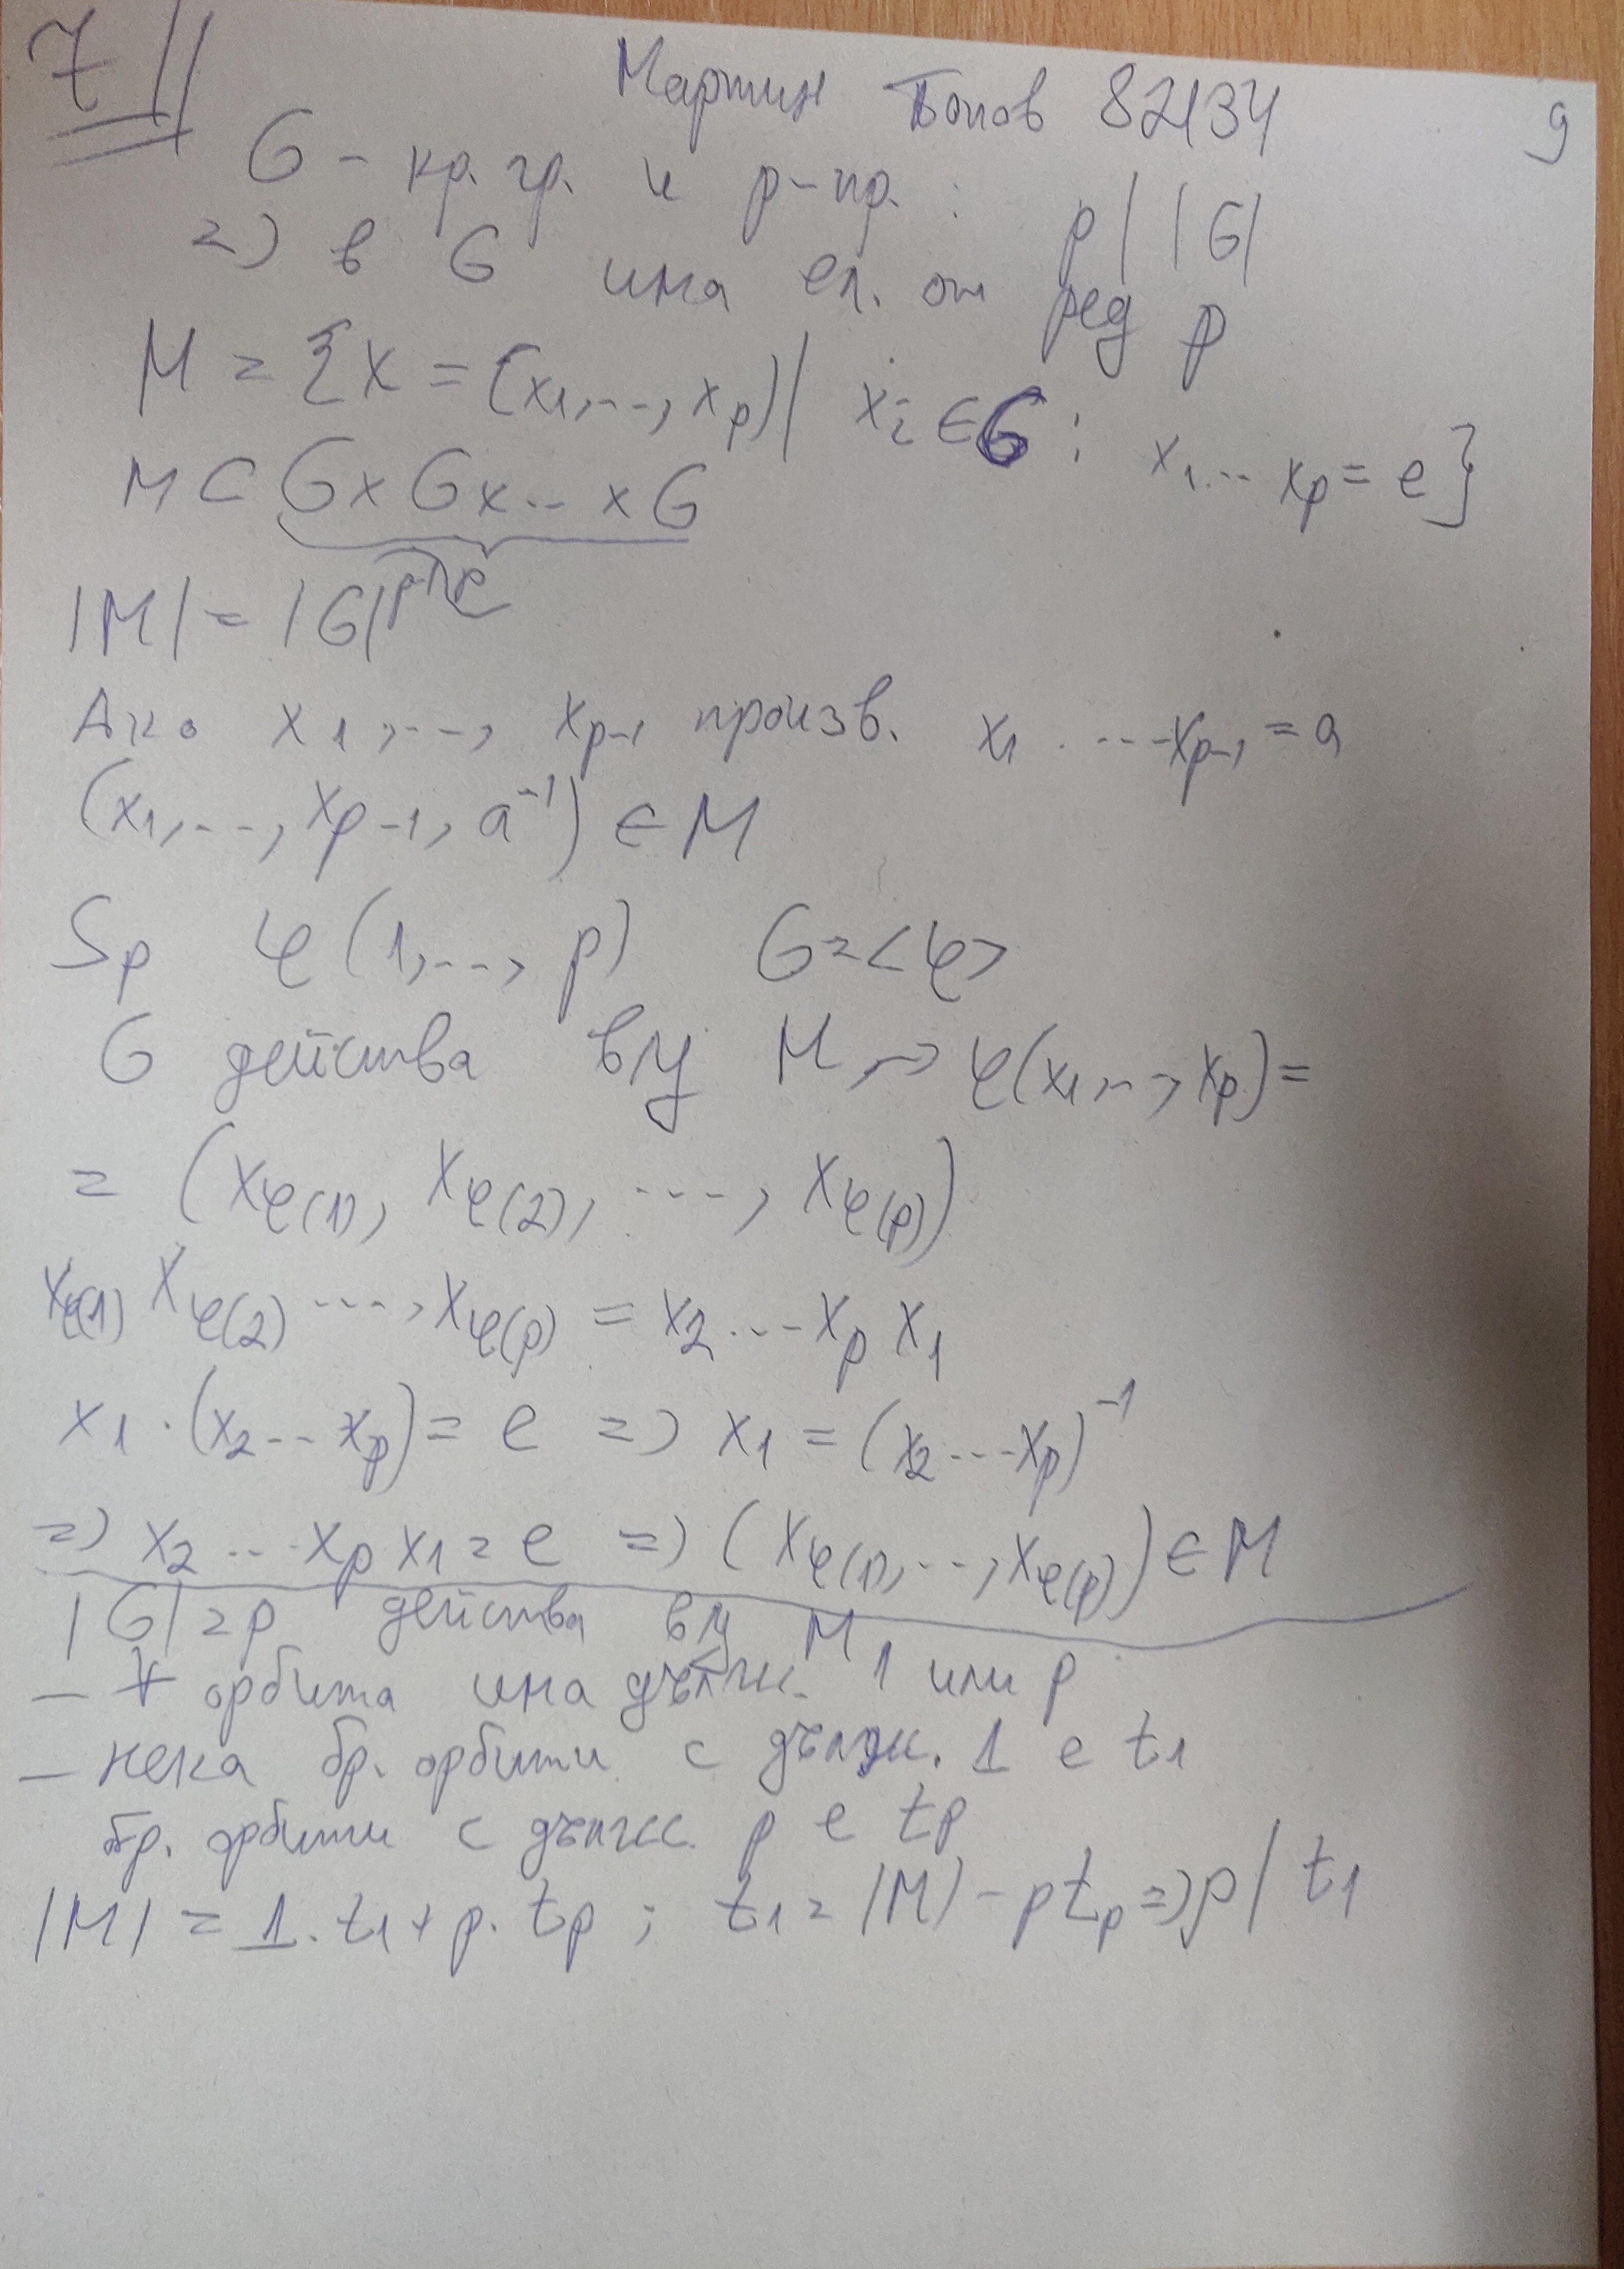 7
Мартин Попов 82134
9
G - кр. гр. и p-пр. : p | |G|
=> в G има ел. от ред p
M = {x = (x1,..., xp) | xi ∈ G : x1...xp = e}
M ⊂ G x G x ... x G
|M| = |G|^p-1
Ако x1,..., xp-1 произв. x1 ....xp-1 = a
(x1,..., xp-1, a^-1) ∈ M
Sp φ(1,..., p) G=<φ>
G действа в/у M, -> φ(x1,..., xp) =
= (xφ(1), xφ(2), ...., xφ(p))
xφ(1) xφ(2) ...., xφ(p) = x2 ... xp x1
x1 . (x2...xp) = e => x1 = (x2...xp)^-1
=> x2 ... xp x1 = e => (xφ(1),..., xφ(p)) ∈ M
|G| = p действа в/у M
- ∀ орбита има дълж. 1 или p
- нека бр. орбити с дълж. 1 е t1
бр. орбити с дълж. p е tp
|M| = 1. t1 + p. tp ; t1 = |M| - ptp => p | t1